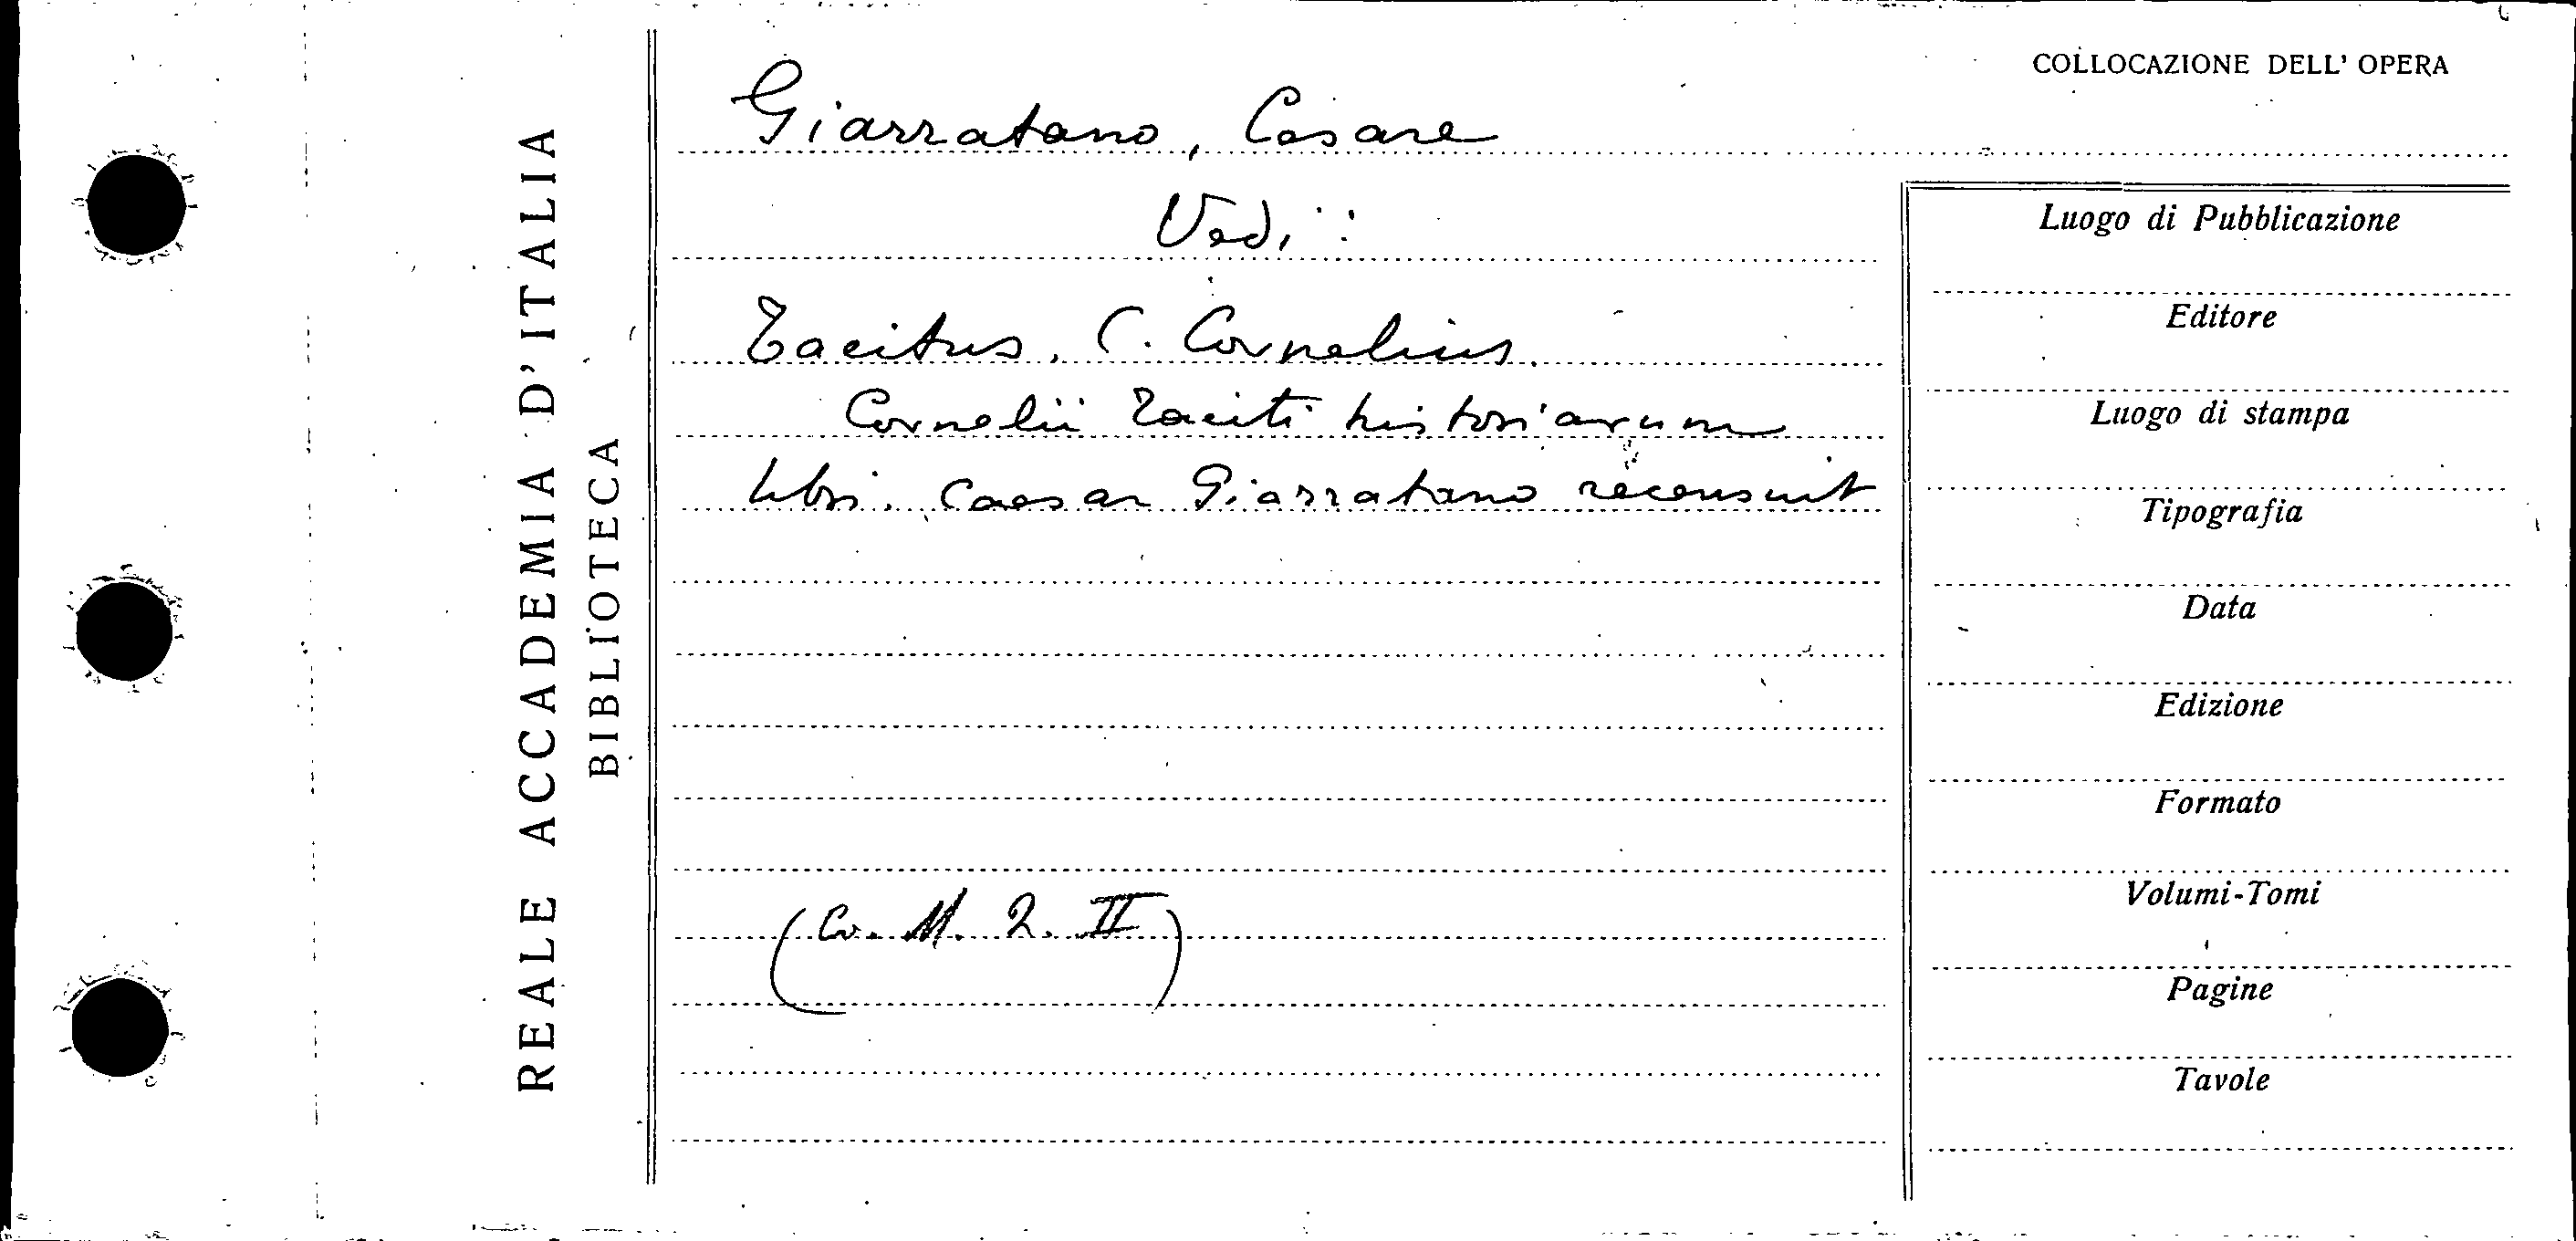 REALE ACCADEMIA D'ITALIA
BIBLIOTECA
COLLOCAZIONE DELL' OPERA
Giarratano, Cesare
Vedi:
Tacitus, C. Cornelius.
Cornelii Taciti historiarum
libri. Caesar Giarratano recensuit
(Cv. M. 2. II)
Luogo di Pubblicazione
Editore
Luogo di stampa
Tipografia
Data
Edizione
Formato
Volumi-Tomi
Pagine
Tavole